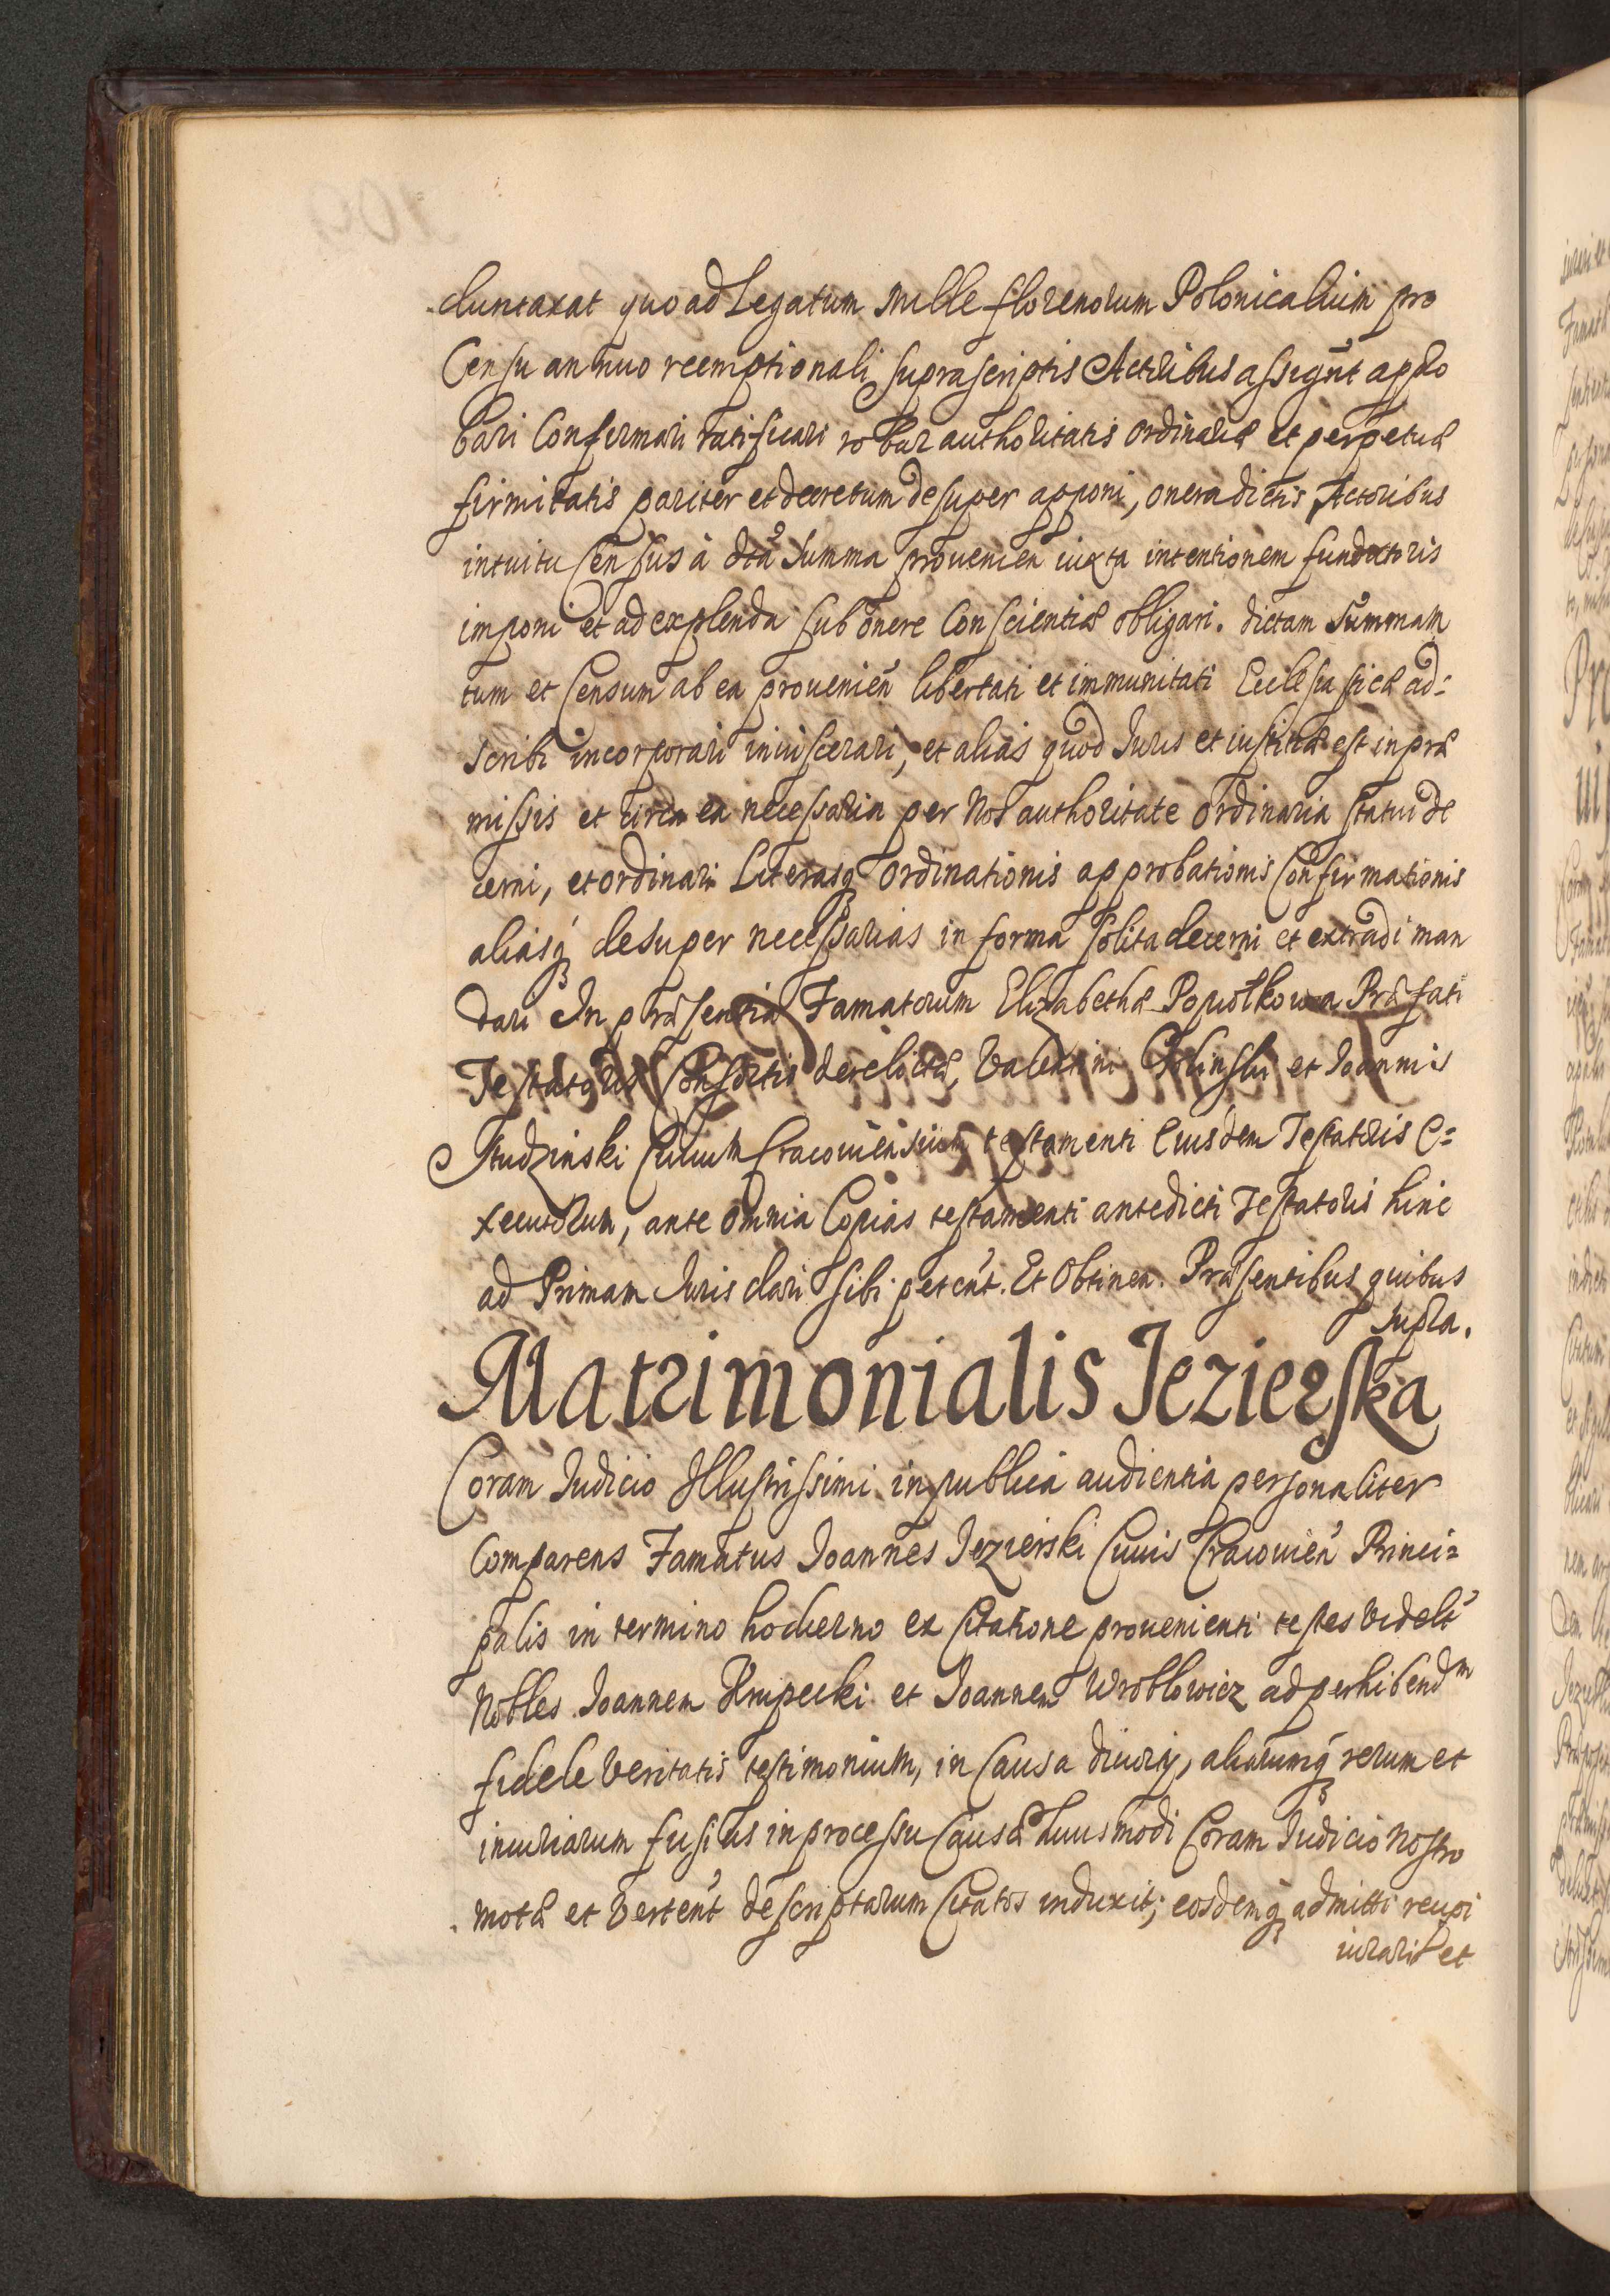 duntaxat quo ad Legatum Mille florenorum Polonicalium pro
Censu annuo reemptionali suprascriptis Actoribus assignt appro
bari Confirmari ratificari robur authoritatis ordinariæ et perpetuæ
firmitatis pariter et decretum desuper apponi, onera dictis Actoribus
intuitu Census à dta Summa prouenien iuxta intentionem fundatoris
imponi et ad explenda sub onere Conscientiæ obligari. dictam Summam
tum et Censum ab ea prouenien libertati et immunitati Ecclesiasticæ ad=
scribi incorporari inuiscerari, et alias quod Iuris et iustitiæ est in præ
missis et circa ea necessaria per Nos authoritate ordinaria statui de
cerni, et ordinari Literasq ordinationis approbationis Confirmationis
aliasq desuper necessarias in forma solita decerni et extradi man
dari In præsentia Famatorum Elizabethæ Popiołkowa Præfati
Testatoris Consortis derelictæ, Valentini Golinski et Joannis
Studzinski Ciuium Cracouiensium testamenti Eiusdem Testatoris E=
xecutorum, ante omnia Copias testamenti antedicti Testatoris hinc
ad Primam Iuris dari sibi petent. Et Obtinen. Præsentibus quibus
supra.
Matrimonialis Jezierska
Coram Iudicio Illustrissimi in publica audientia personaliter
Comparens Famatus Joannes Jezierski Ciuis Cracouien Princi=
palis in termino hodierno ex Citatione prouenienti testes videlt
Nobles Joannem Krupecki et Joannem Wroblowicz ad perhibendm
fidele veritatis testimonium, in Causa diuorij, aliarumq rerum et
iniuriarum fusius in processu Causæ huiusmodi Coram Iudicio Nostro
motæ et vertent descriptarum Citatos induxit; eosdemq admitti recipi
iurari et